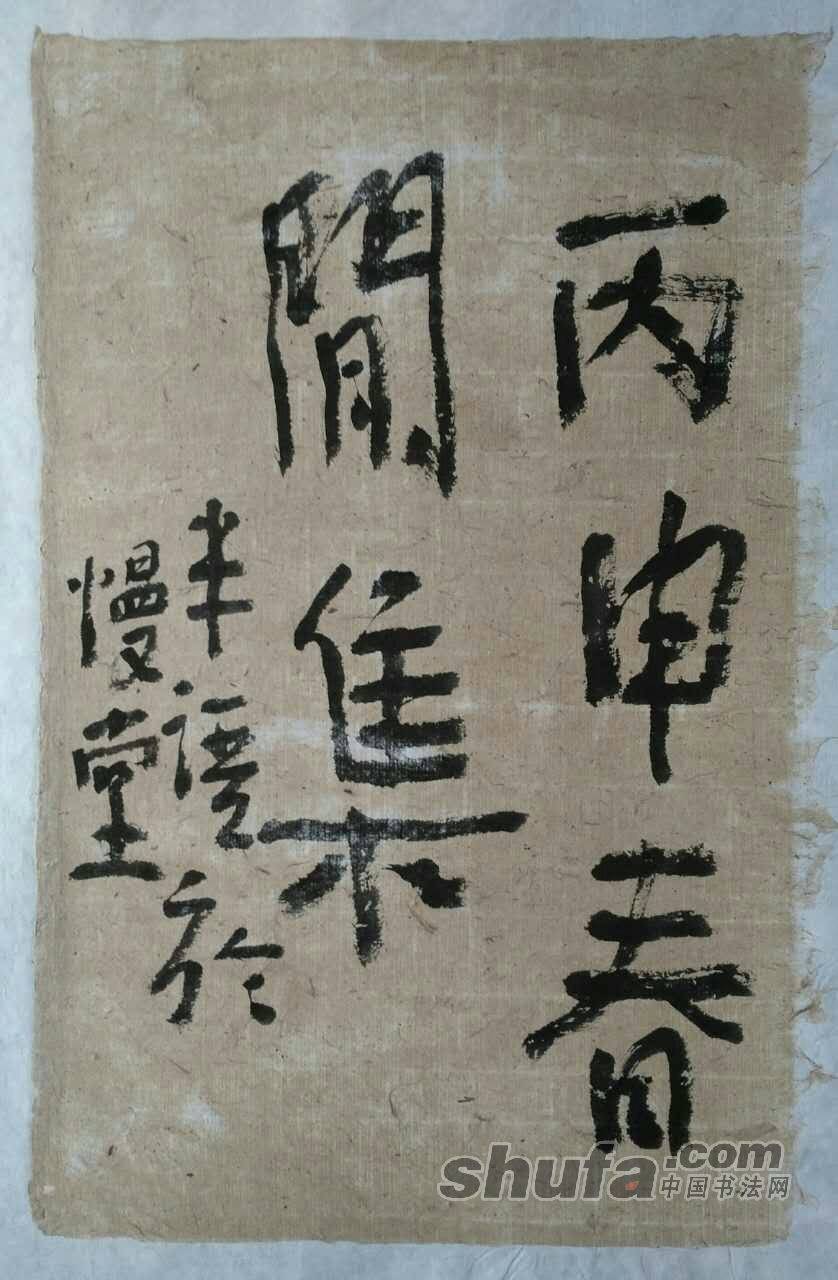 丙申春
閒集
半語於
慢堂
shufa.com
中国书法网